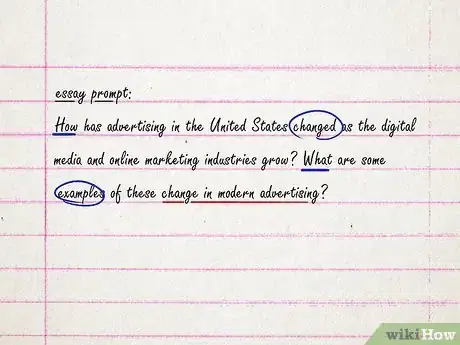 essay prompt:
How has advertising in the United States changed as the digital
media and online marketing industries grow? What are some
examples of these change in modern advertising?
wikiHow